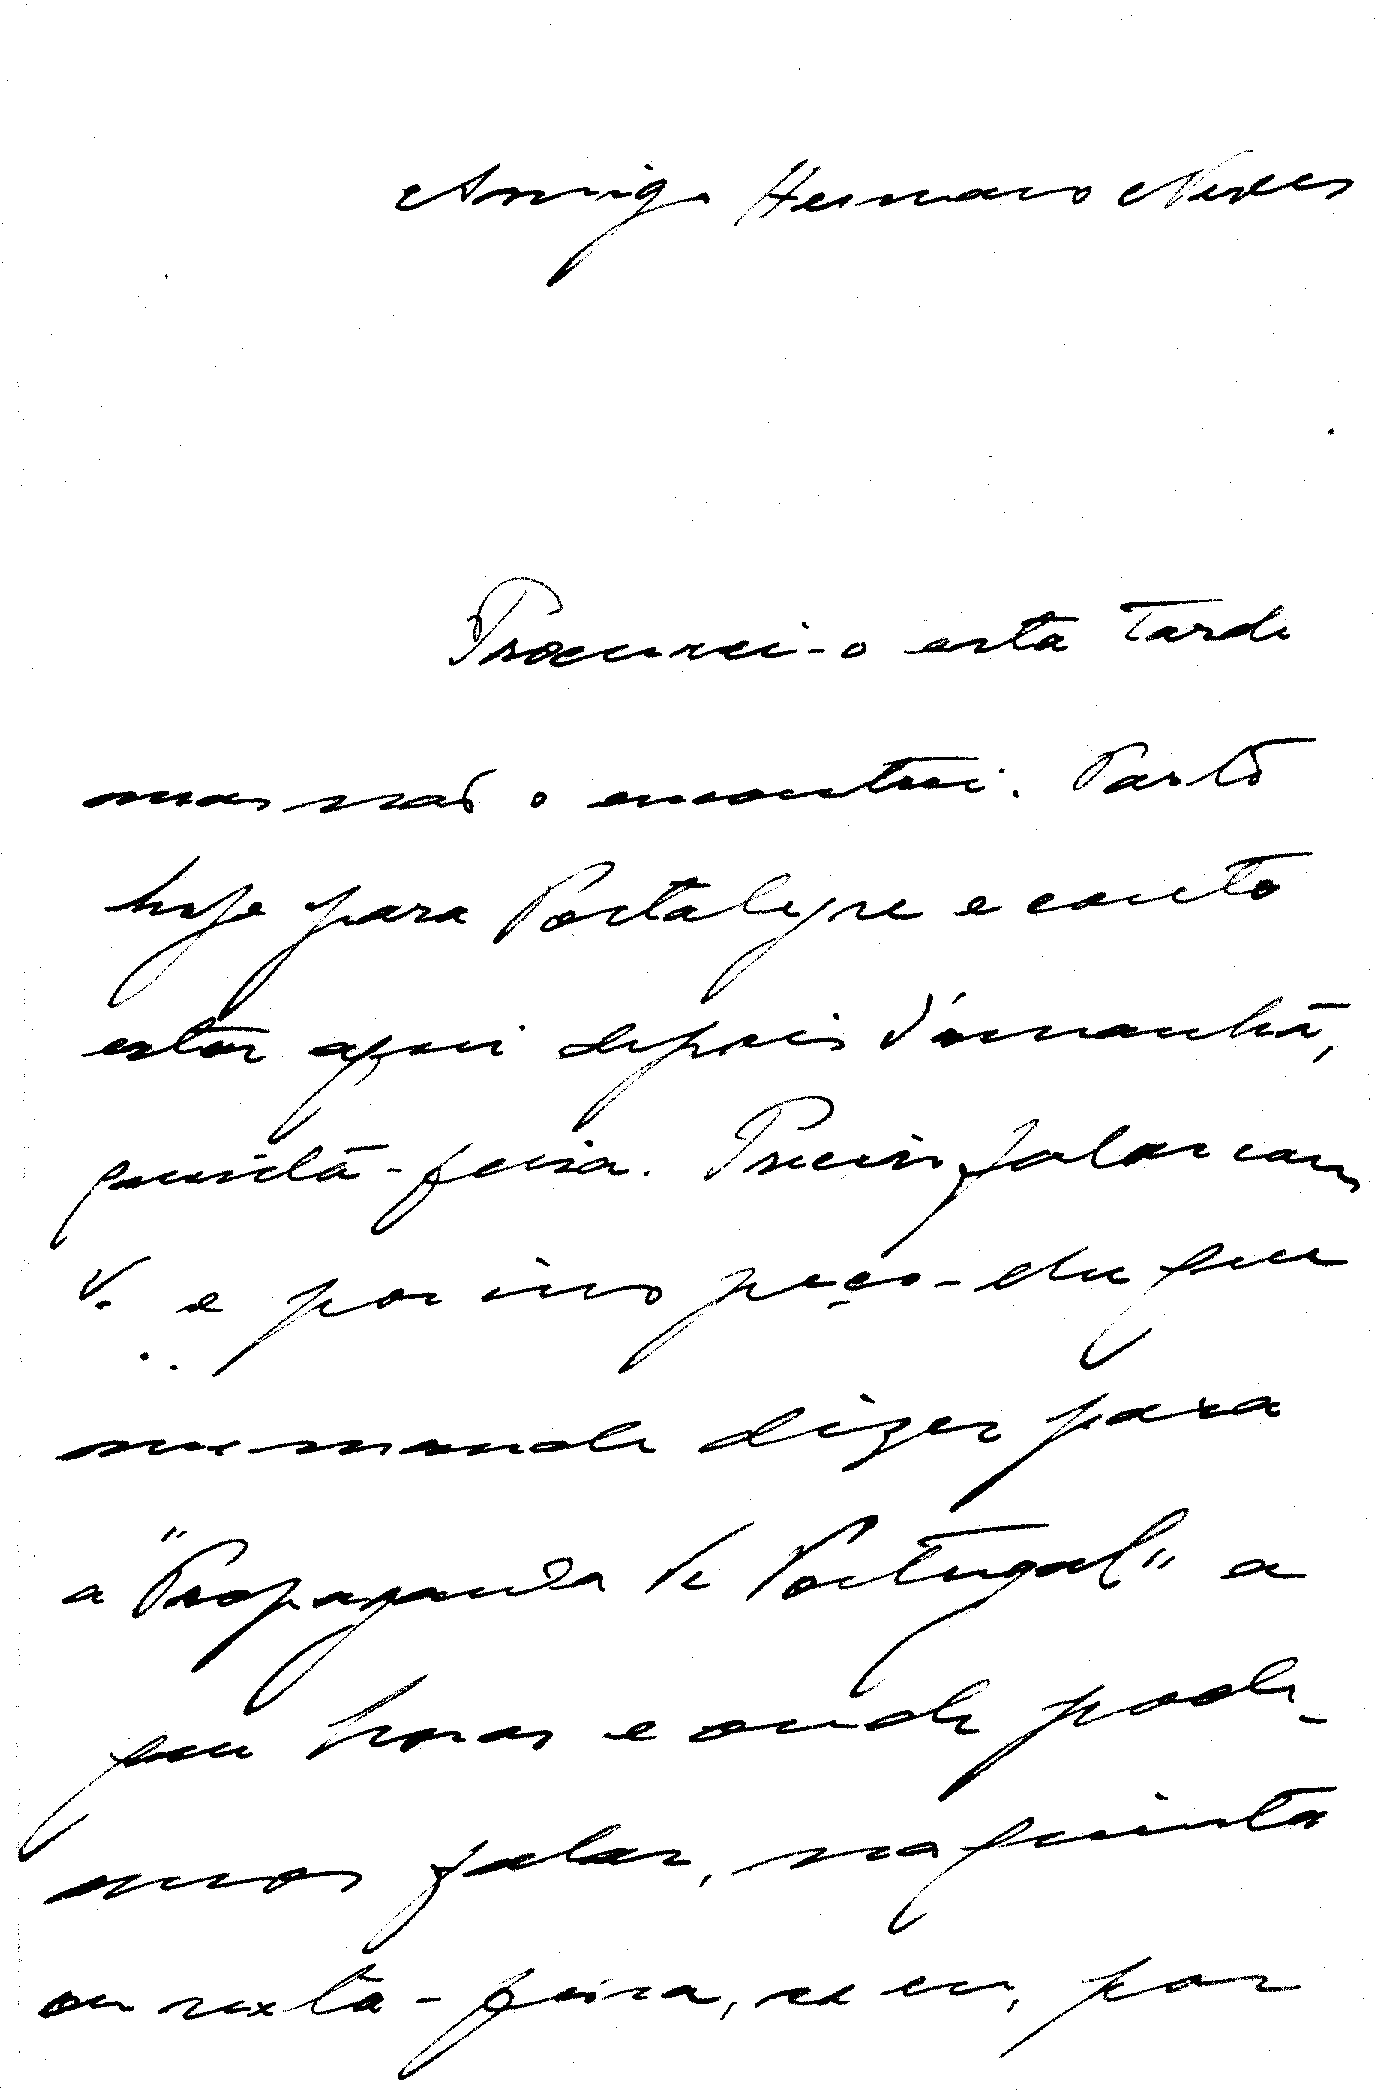 Amigo Hermano Neves
Procurei-o esta tarde
mas não o encontrei. Parto
hoje para Portalegre e conto
estar aqui depois d'amanhã,
quinta-feira. Preciso falar com
V. e por isso peço-lhe que
me mande dizer para
a "Propaganda de Portugal" a
que horas e onde pode-
mos falar, na quinta
ou sexta-feira, se eu, por